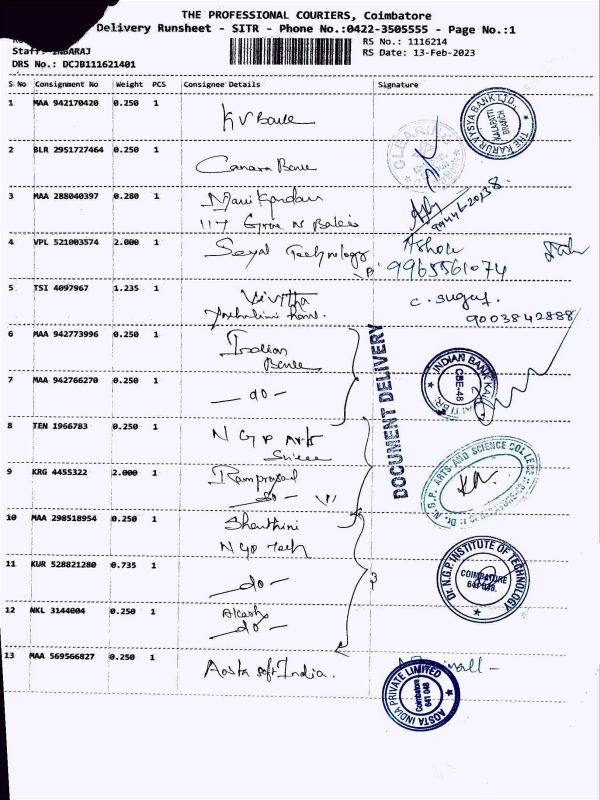 THE PROFESSIONAL COURIERS, Coimbatore
Delivery Runsheet - SITR - Phone No.:0422-3505555 - Page No.:1
RS No.: 1116214
Staff: INBARAJ RS Date: 13-Feb-2023
DRS No.: DCJB111621401
S.No Consignment No Weight PCS Consignee Details Signature
1 MAA 942170420 0.250 1 KV Bank
THE KARUR VYSYA BANK LTD.,
KALAPATTI BRANCH
CLEARING
2 BLR 2951727464 0.250 1 Canara Bank
3 MAA 288040397 0.280 1 Manikandan
117
99446-20138
4 VPL 521003574 2.000 1 Technology
Ashok
9965561074
5 TSI 4097967 1.235 1
C. Sugu
9003842888
6 MAA 942773996 0.250 1 Indian
Bank
INDIAN BANK
CBE-48
DOCUMENT DELIVERY
7 MAA 942766270 0.250 1 - do -
8 TEN 1966783 0.250 1 N G P Arts
9 KRG 4455322 2.000 1 Ramprasad
- do -
Dr. N.G.P. ARTS AND SCIENCE COLLEGE
10 MAA 298518954 0.250 1 Shanthini
N G P Tech
11 KUR 528821280 0.735 1 - do -
Dr. N.G.P. INSTITUTE OF TECHNOLOGY
COIMBATORE
641 048.
12 NKL 3144004 0.250 1 Akash
- do -
13 MAA 569566827 0.250 1 Aosta soft India.
AOSTA INDIA PRIVATE LIMITED
Coimbatore
641 048